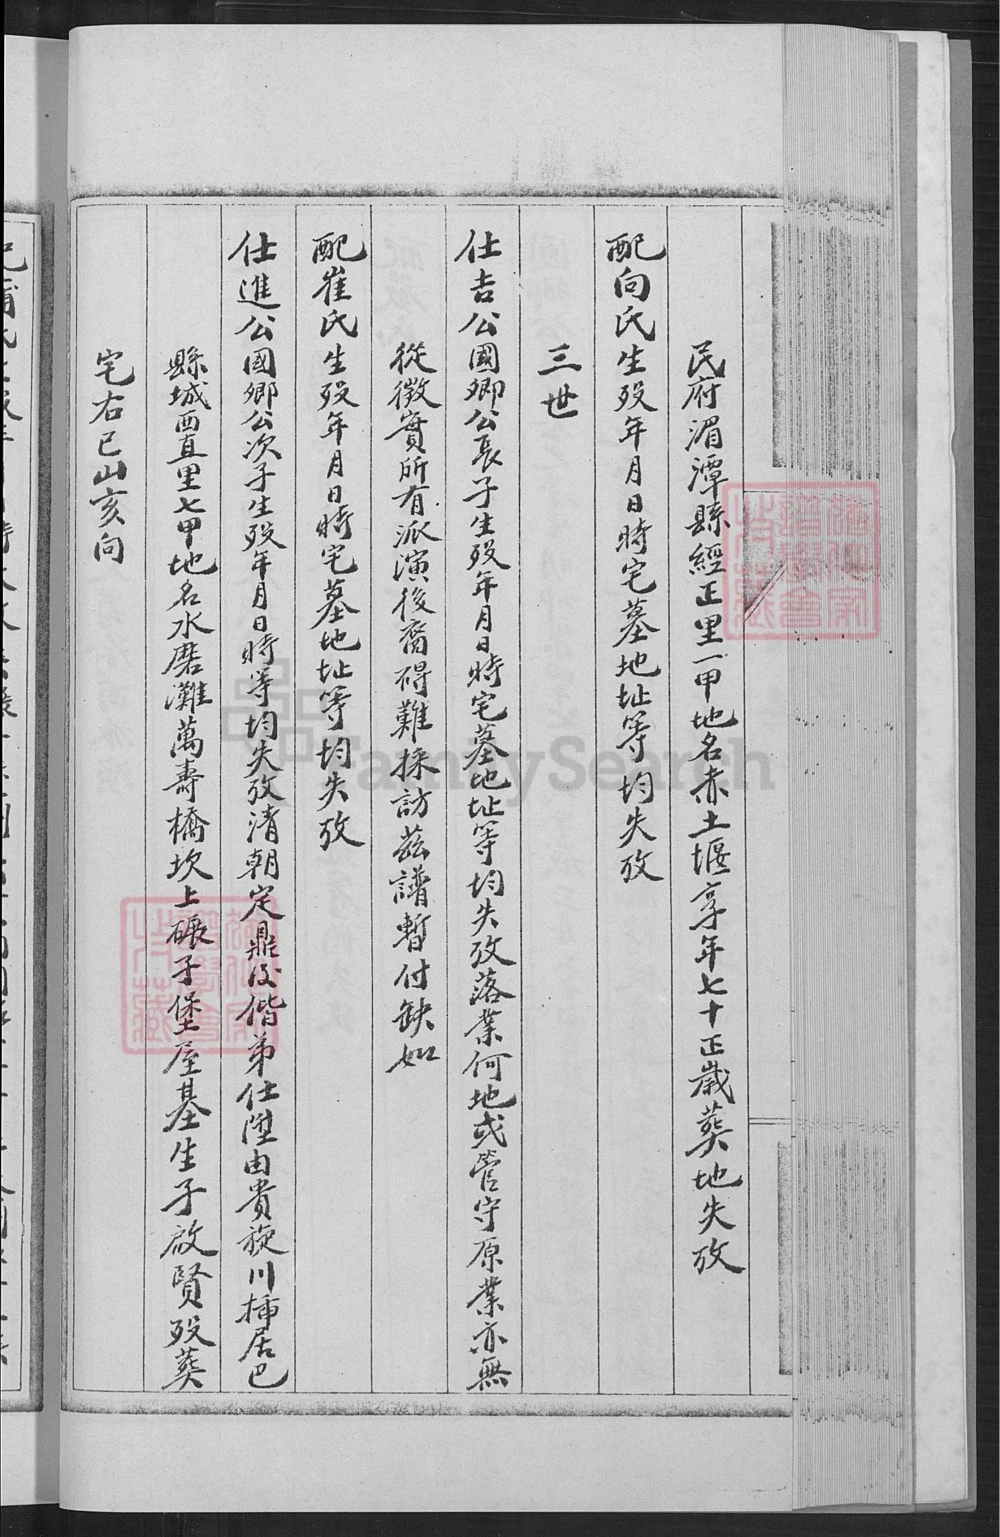 民府湄潭縣經正里一甲地名赤土堰享年七十正歲葬地失攷
配向氏生歿年月日時宅墓地址等均失攷
三世
仕吉公國卿公長子生歿年月日時宅墓地址等均失攷落業何地或管守原業亦無
從徵實所有派演後裔碍難採訪茲譜暫付缺如
配崔氏生歿年月日時宅墓地址等均失攷
仕進公國卿公次子生歿年月日時等均失攷清朝定鼎後偕弟仕陞由貴旋川插居巴
縣城西直里七甲地名水磨灘萬壽橋坎上碾子堡屋基生子啟賢歿葬
宅右巳山亥向
FamilySearch